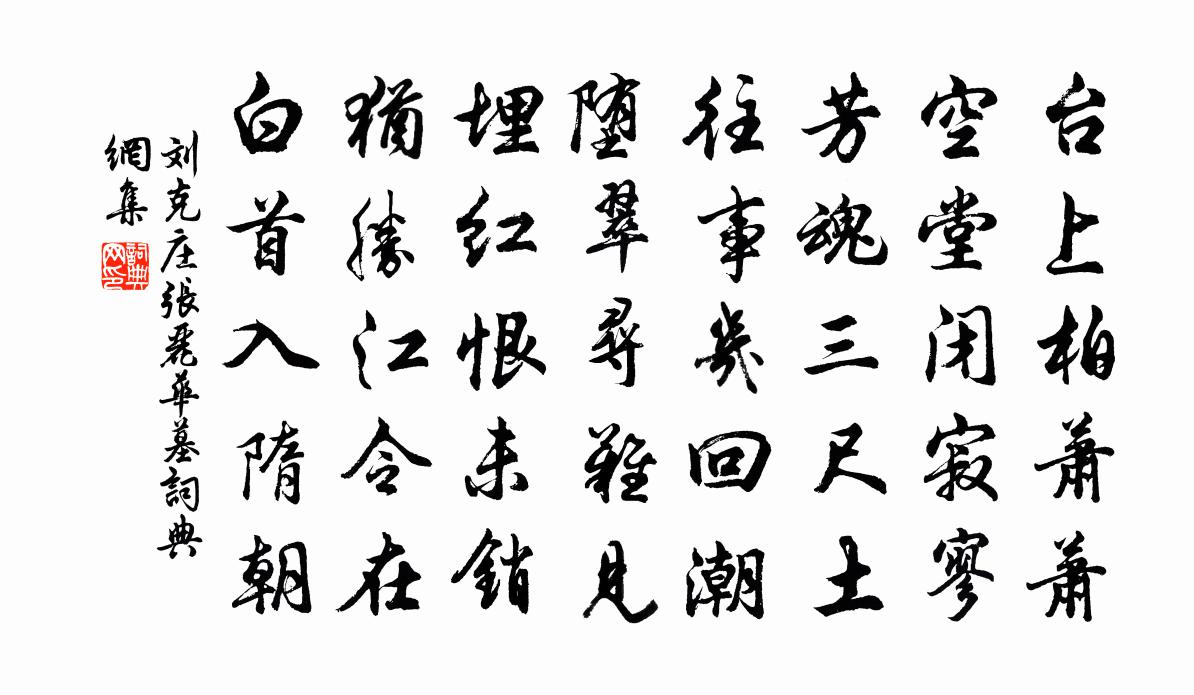 台上柏萧萧
空堂闭寂寥
芳魂三尺土
往事几回潮
堕翠寻难见
埋红恨未销
犹胜江令在
白首入隋朝
刘克庄張麗華墓詞典
網集
詞典
网印